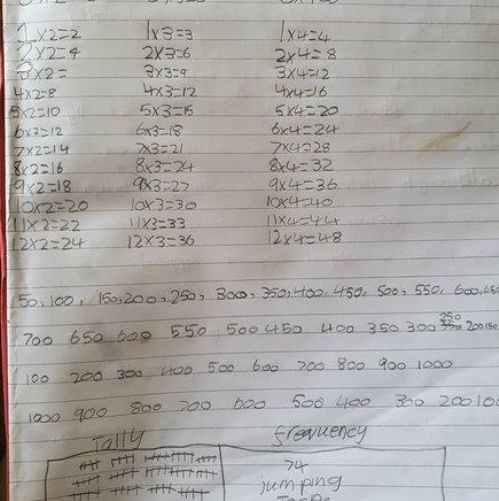 1x2=2 1x3=3 1x4=4
2x2=4 2x3=6 2x4=8
3x2= 3x3=9 3x4=12
4x2=8 4x3=12 4x4=16
5x2=10 5x3=15 5x4=20
6x2=12 6x3=18 6x4=24
7x2=14 7x3=21 7x4=28
8x2=16 8x3=24 8x4=32
9x2=18 9x3=27 9x4=36
10x2=20 10x3=30 10x4=40
11x2=22 11x3=33 11x4=44
12x2=24 12x3=36 12x4=48
50, 100, 150, 200, 250, 300, 350, 400, 450, 500, 550, 600,
250
700 650 600 550 500 450 400 350 300 200
100 200 300 400 500 600 700 800 900 1000
1000 900 800 700 600 500 400 300 200
Tally frequency
74
jumping